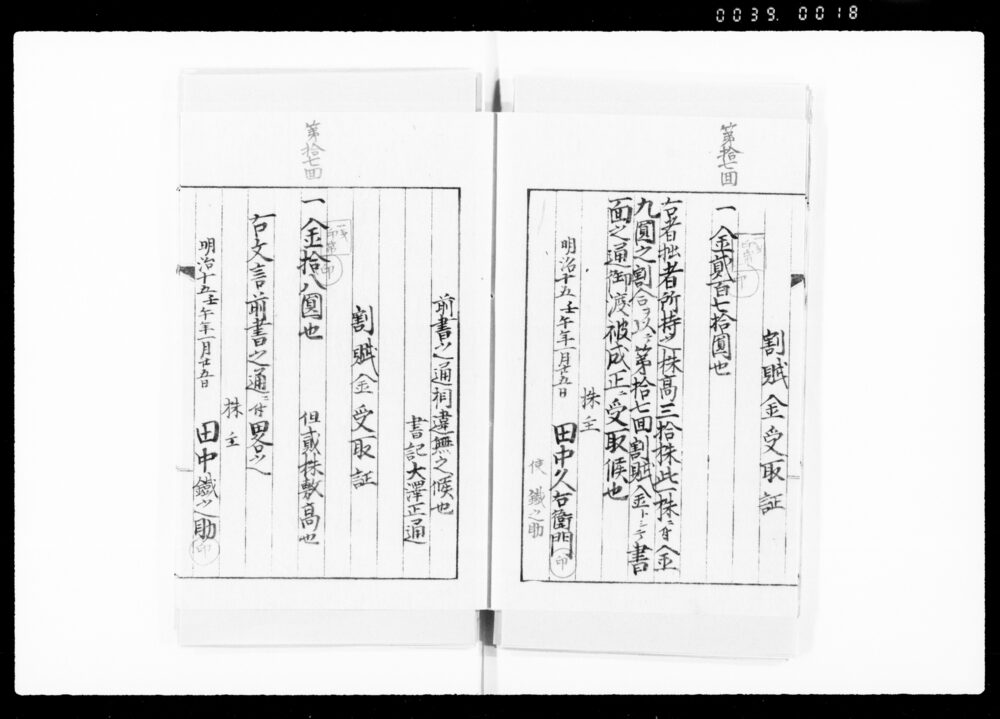 0039. 0018
第拾七回
割賦金受取証
一金貳百七拾圓也
右者拙者所持之株高三拾株此一株ニ付金
九圓之割合ヲ以ニ第拾七回割賦金トシテ書
面之通御渡被成正ニ受取候也
明治十五壬午年一月廿五日
株主
田中久右衛門 印
使 鐵之助
第拾七回
前書之通相違無之候也
書記大澤正通
割賦金受取証
一金拾八圓也 但貳株敷高也
右文言前書之通ニ付畧之
明治十五壬午年一月廿五日
株主
田中鐵之助 印